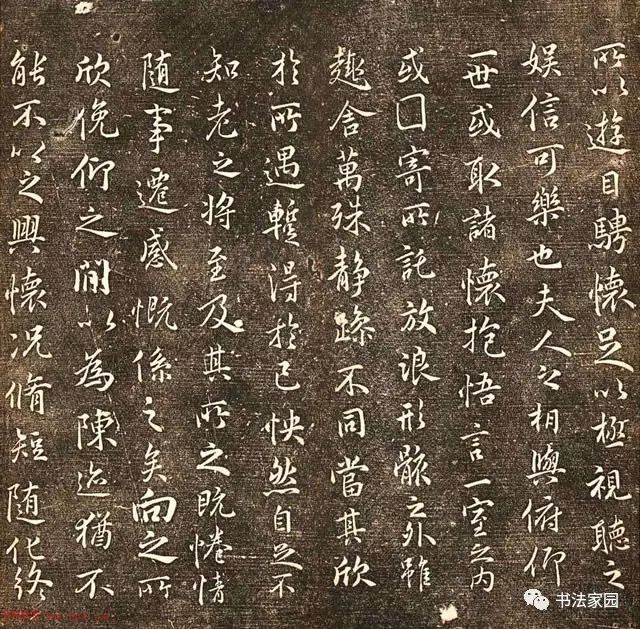 所以遊目騁懷足以極視聽之
娛信可樂也夫人之相與俯仰
一世或取諸懷抱悟言一室之內
或因寄所託放浪形骸之外雖
趣舍萬殊静躁不同當其欣
於所遇蹔得於己怏然自足不
知老之將至及其所之既惓情
随事遷感慨係之矣向之所
欣俛仰之間以為陳迹猶不
能不以之興懷況脩短随化終
书法家园